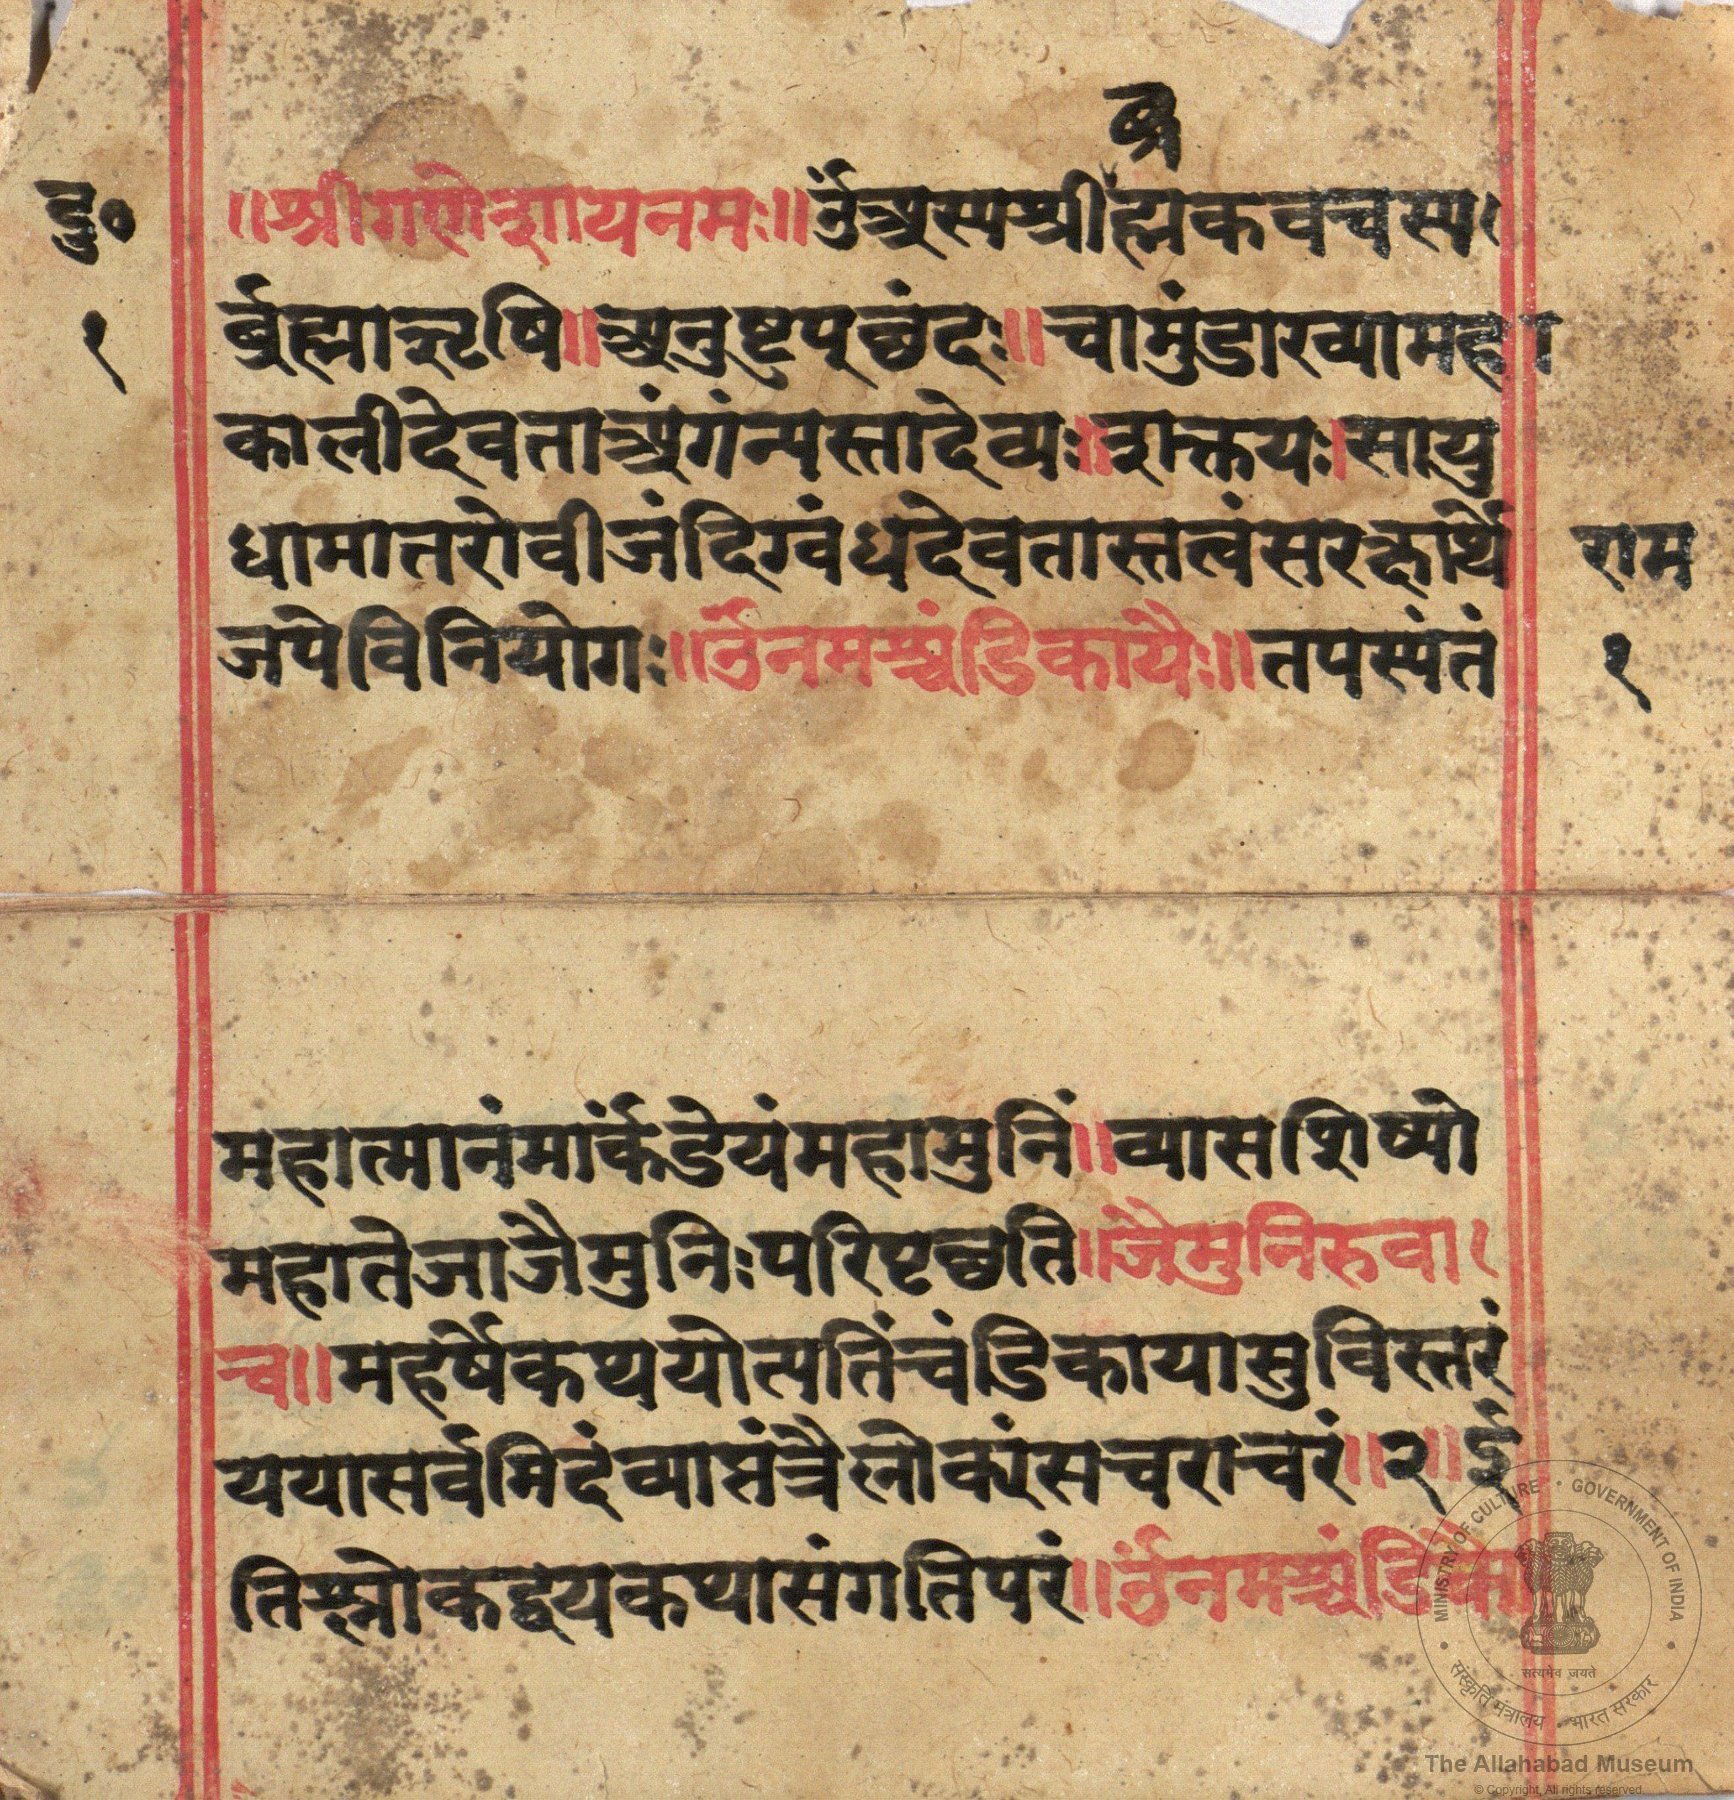 ब्र
दु०
॥श्रीगणेशायनमः॥ॐअस्यश्रीह्मकवचस्य
१
र्ब्रह्माऋषि॥अनुष्टुप्छंदः॥चामुंडाख्यामहा
कालीदेवताअंगंन्यस्तादेव्यः॥शक्तयः।सायु
धामातरोवीजंदिग्वंधंदेवतास्तत्वंसरक्षार्थे
राम
जपेविनियोगः॥ॐनमश्चंडिकायैः॥तपस्यंतं
१
महात्मानंमार्कंडेयंमहामुनिं॥व्यासशिष्यो
महातेजाजैमुनिःपरिपृच्छति॥जैमुनिरुवा
च॥महर्षेकथयोत्पतिंचंडिकायासुविस्तरं
ययासर्वमिदंव्याप्तंत्रैलोक्यंसचराचरं॥२॥ई
तिश्लोकद्वयकथासंगतिपरं॥ॐनमश्चंडिका
MINISTRY OF CULTURE · GOVERNMENT OF INDIA
सत्यमेव जयते
संस्कृति मंत्रालय भारत सरकार
The Allahabad Museum
© Copyright, All rights reserved